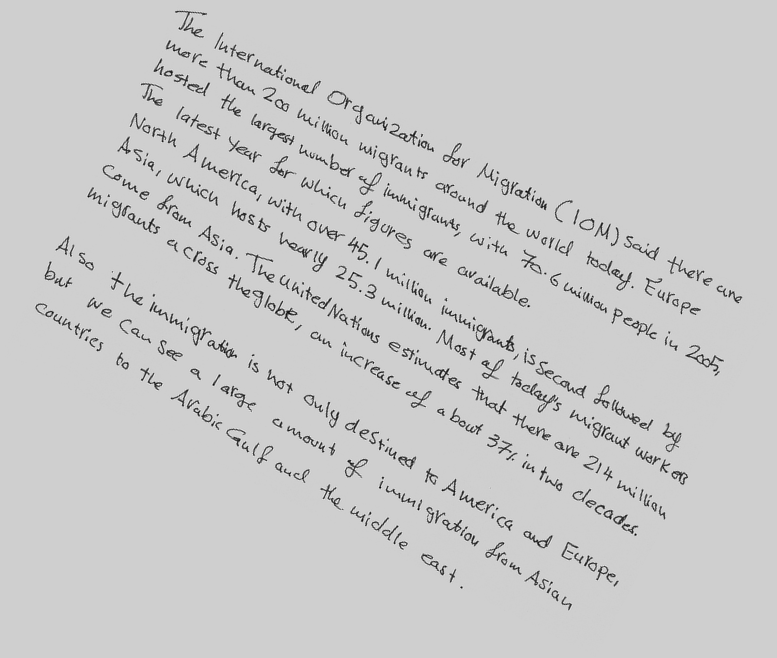 The International Organization for Migration (IOM) said there are
more than 200 million migrants around the world today. Europe
hosted the largest number of immigrants, with 70.6 million people in 2005,
The latest year for which figures are available.
North America, with over 45.1 million immigrants, is second followed by
Asia, which hosts nearly 25.3 million. Most of today's migrant workers
come from Asia. The United Nations estimates that there are 214 million
migrants across the globe, an increase of about 37% in two decades.
Also the immigration is not only destined to America and Europe,
but we can see a large amount of immigration from Asian
countries to the Arabic Gulf and the middle east.